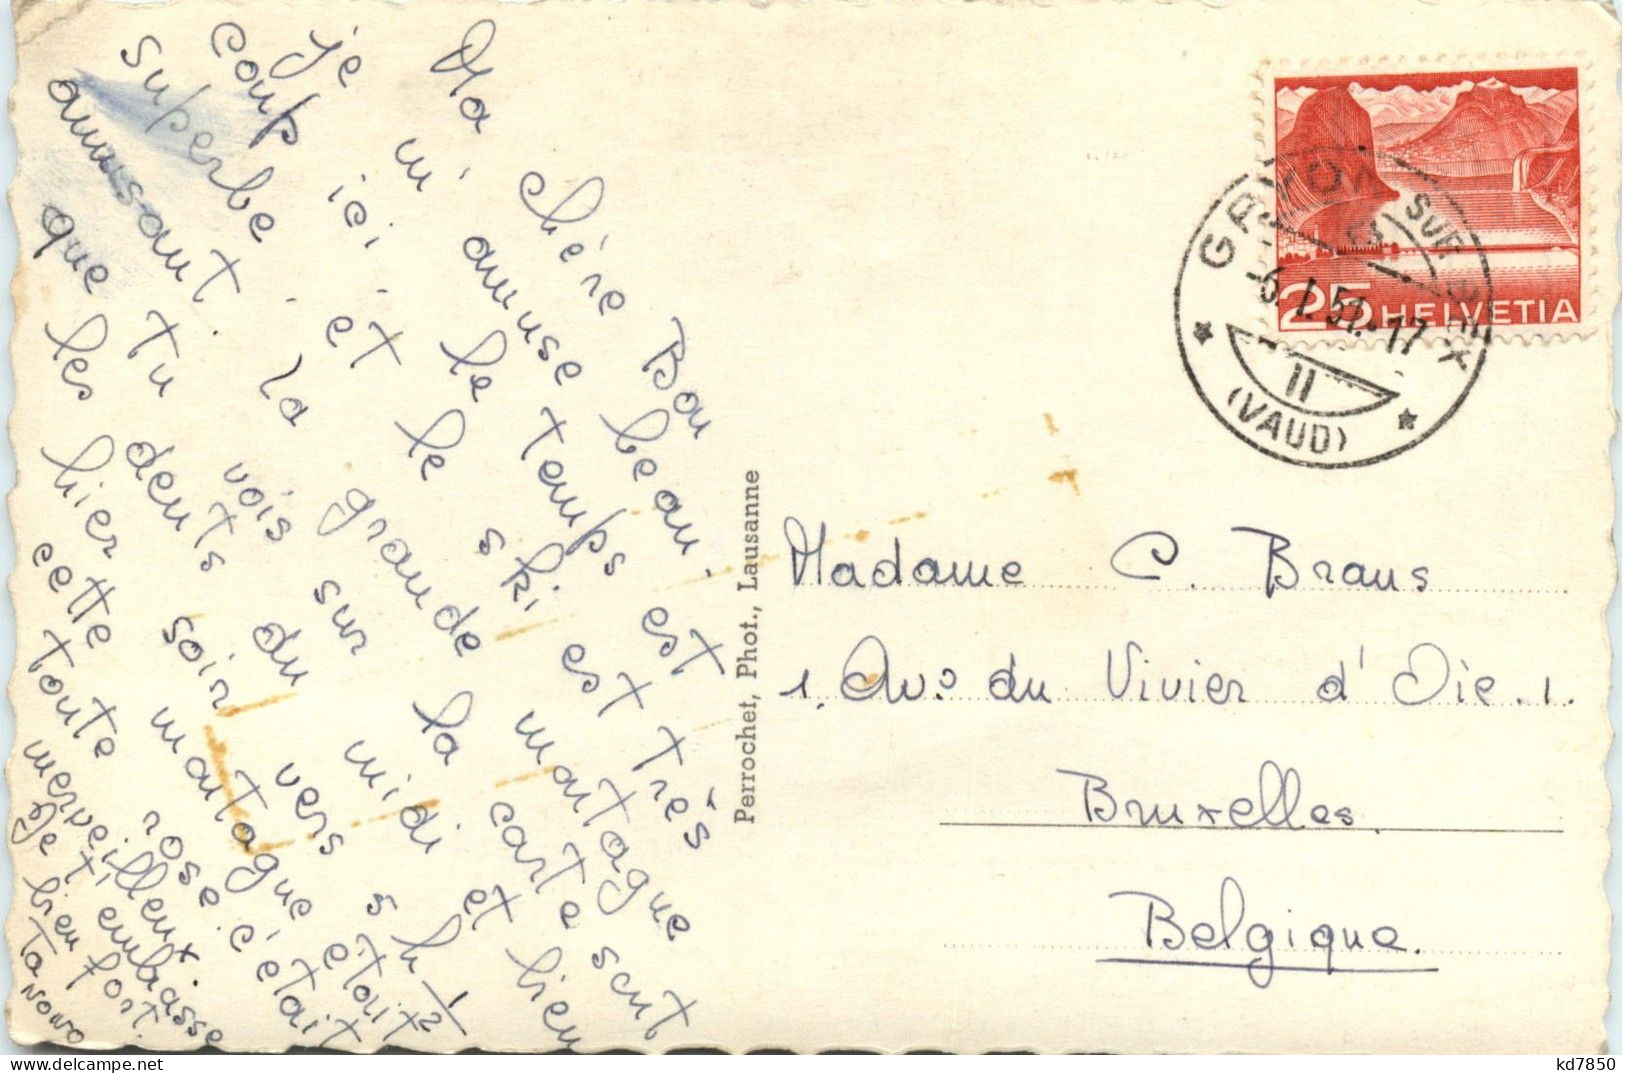 Ma chère Bon
je m'amuse beau
coup ici. le temps est
superbe et le ski est très
amusant. La grande montague
que tu vois sur la carte sont
les dents du midi et bien
hier soir vers 5 h 1/2
cette montague etait
toute rose c'etait
merveilleux.
Je t'embrasse
bien fort.
Ta NONO
Perrochet, Phot., Lausanne
25 HELVETIA
GRYON SUR BEX
-6. I. 51.-17
II
(VAUD)
Madame C. Braus
1, Av. du Vivier d'Oie. 1.
Bruxelles.
Belgique.
delcampe.net
kd7850